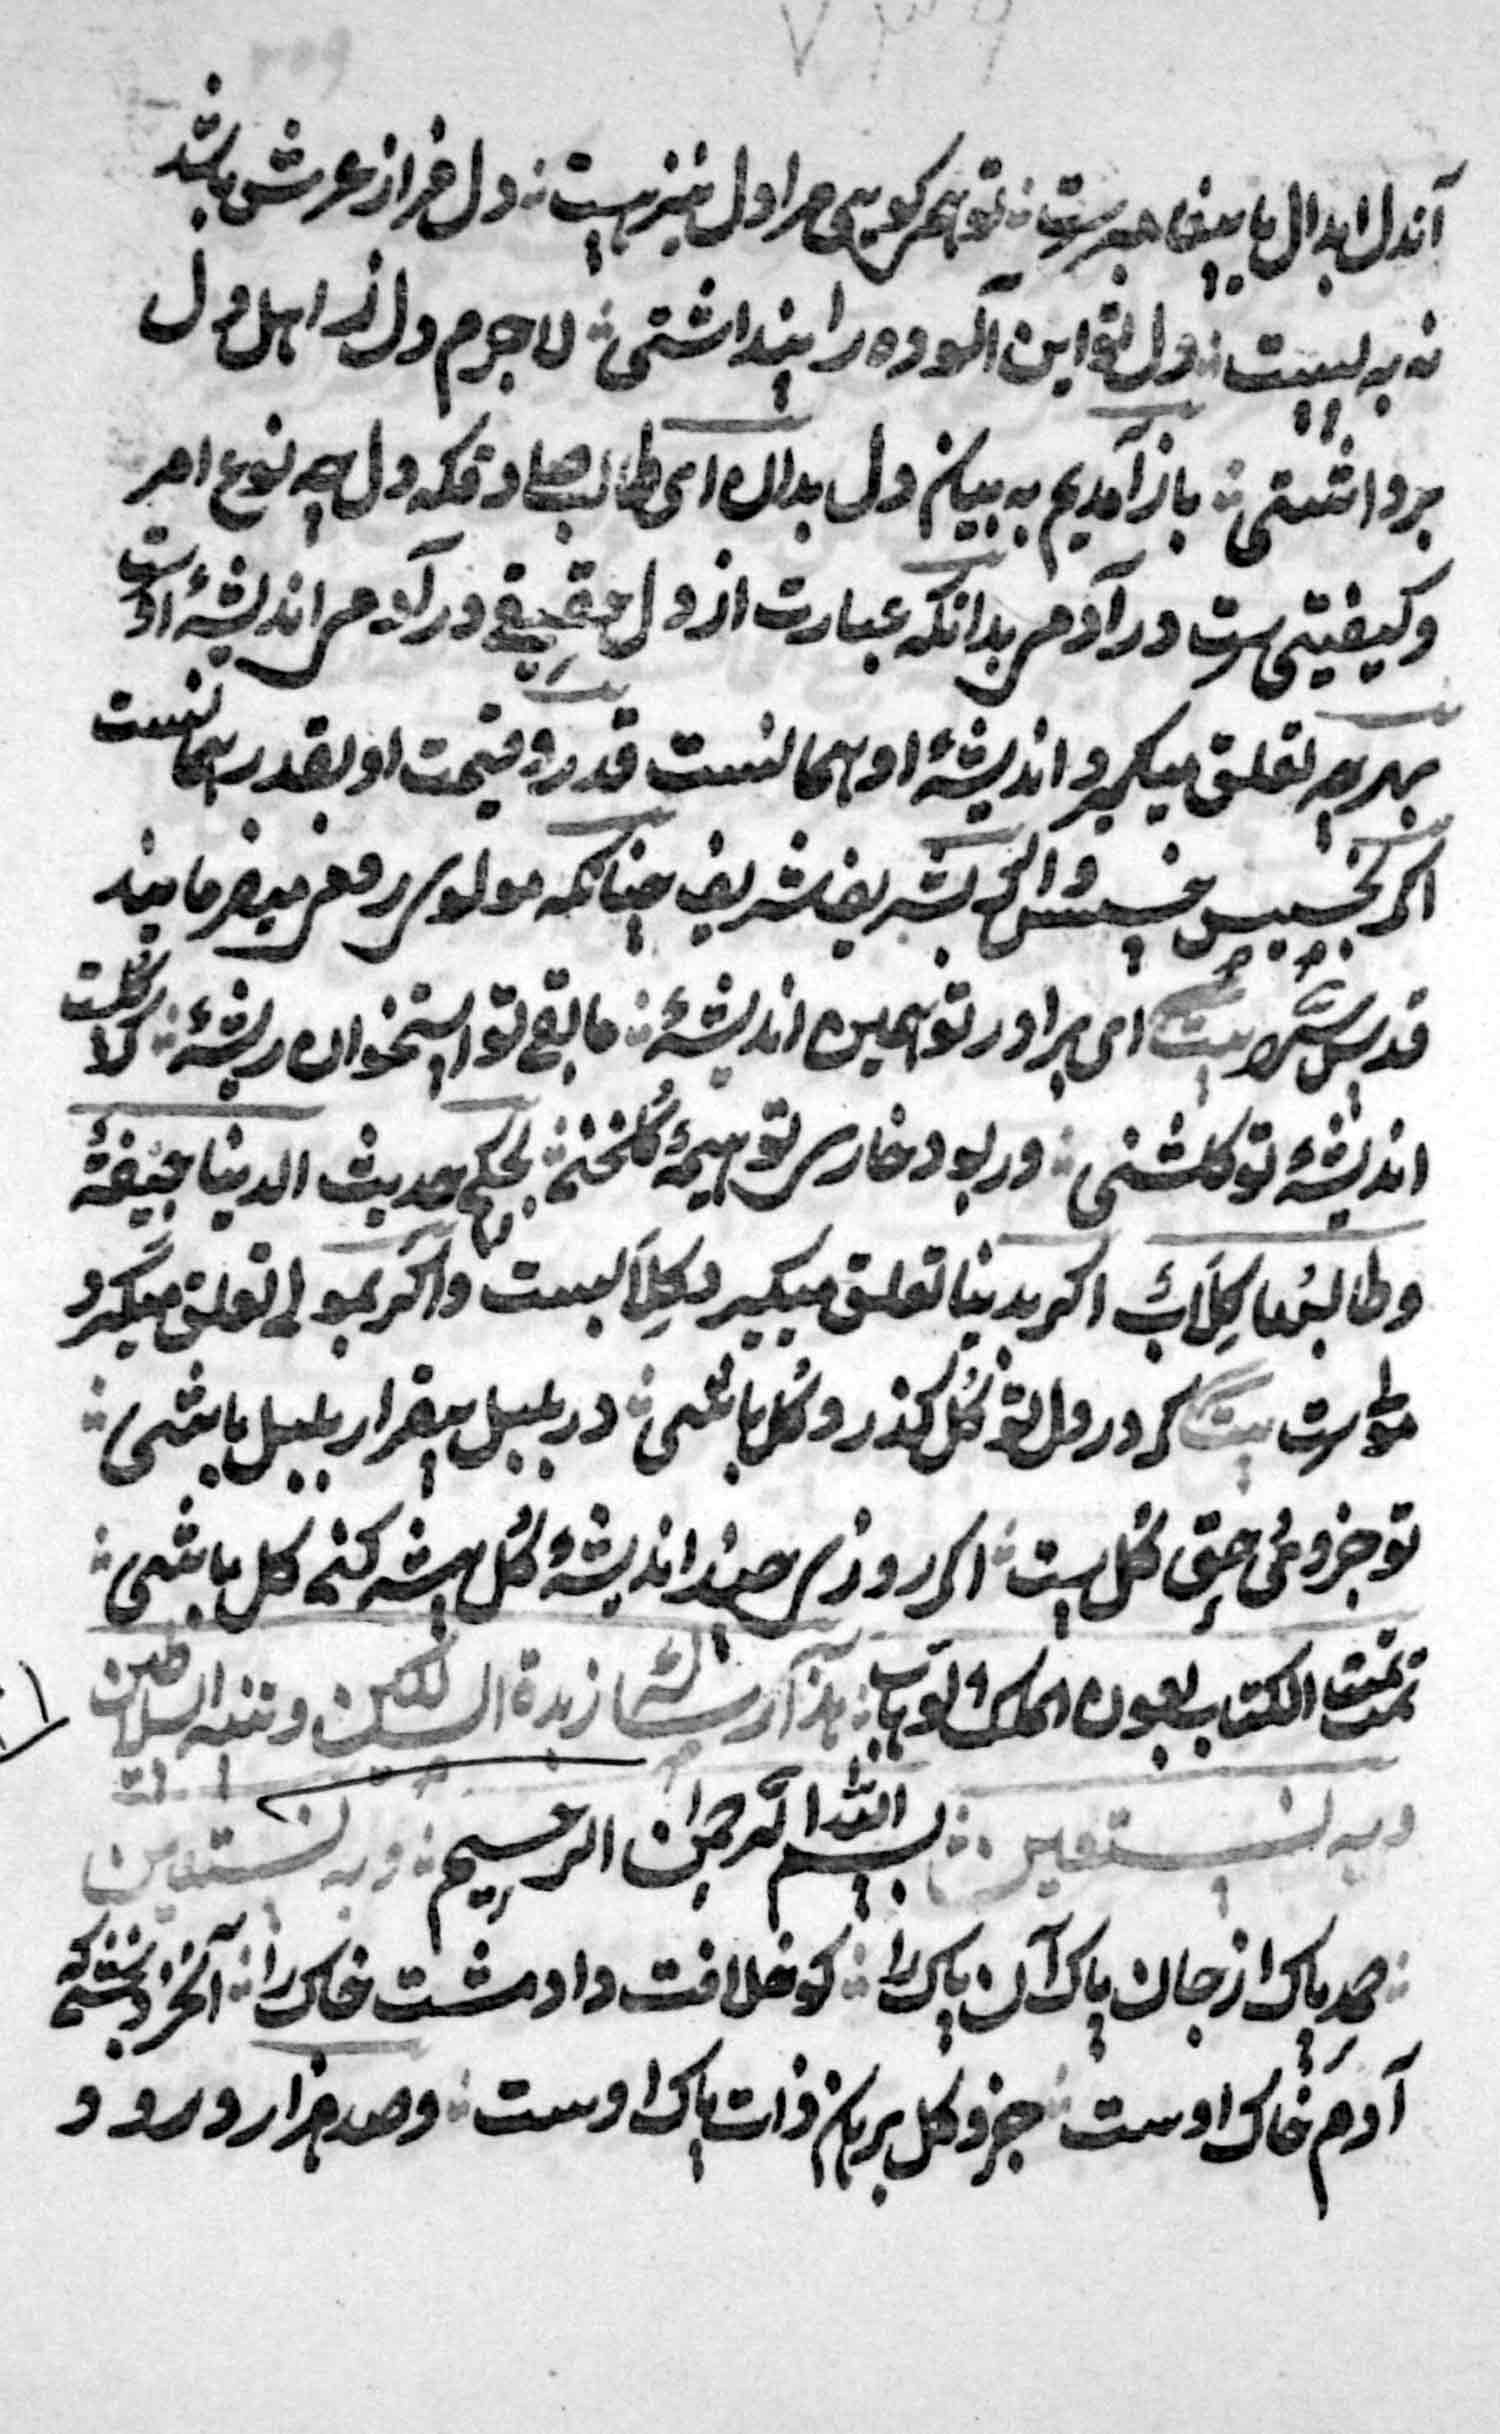 آندل ابدال یا پیغامبرست ؛ تو همی کوهی مرا دل نیز هست ؛ دل فراز عرش باشد
نه به پست ؛ دل تو این آلوده را پنداشتی ؛ لاجرم دل از اهل دل
برداشتی ؛ باز آمدیم به بیان دل بدان ای طالب صادق که دل چه نوع امر
و کیفیتی ست در آدمی بدانکه عبارت از دل حقیقی در آدمی اندیشهٔ اوست
بهرچه تعلق میگیرد اندیشهٔ او همانست قدر و قیمت او بقدر همانست
اگر بخسیس خسیس و اگر بشریف شریف چنانکه مولوی رومی میفرمایند
قدس سره بیت ای برادر تو همین اندیشهٔ ؛ مابقی تو استخوان و ریشهٔ ؛ گر گلست
اندیشهٔ تو گلشنی ؛ ور بود خاری تو هیمهٔ گلخنی ؛ بحکم حدیث الدنیا جیفة
و طالبها کلاب اگر بدنیا تعلق میگیرد کلابست و اگر بمولی تعلق میگیرد
مولی ست بیت گر در دل تو گل گذرد گل باشی ؛ ور بلبل بیقرار بلبل باشی ؛
تو جزوی و حق کل است ؛ اگر روزی چند اندیشهٔ کل پیشه کنی کل باشی ؛
تمت تمت الکتاب بعون الملک الوهاب ؛ هذا رسالهٔ زبدة السالکین و تنبیه السلاطین
و به نستعین ؛ بسم الله الرحمن الرحیم ؛ و به نستعین
حمد پاک از جان پاک آن پاک را ؛ کو خلافت داد مشت خاک را ؛ آن خرد بخشی که
آدم خاک اوست ؛ جزو و کل برهان ذات پاک اوست ؛ و صد هزار درود و